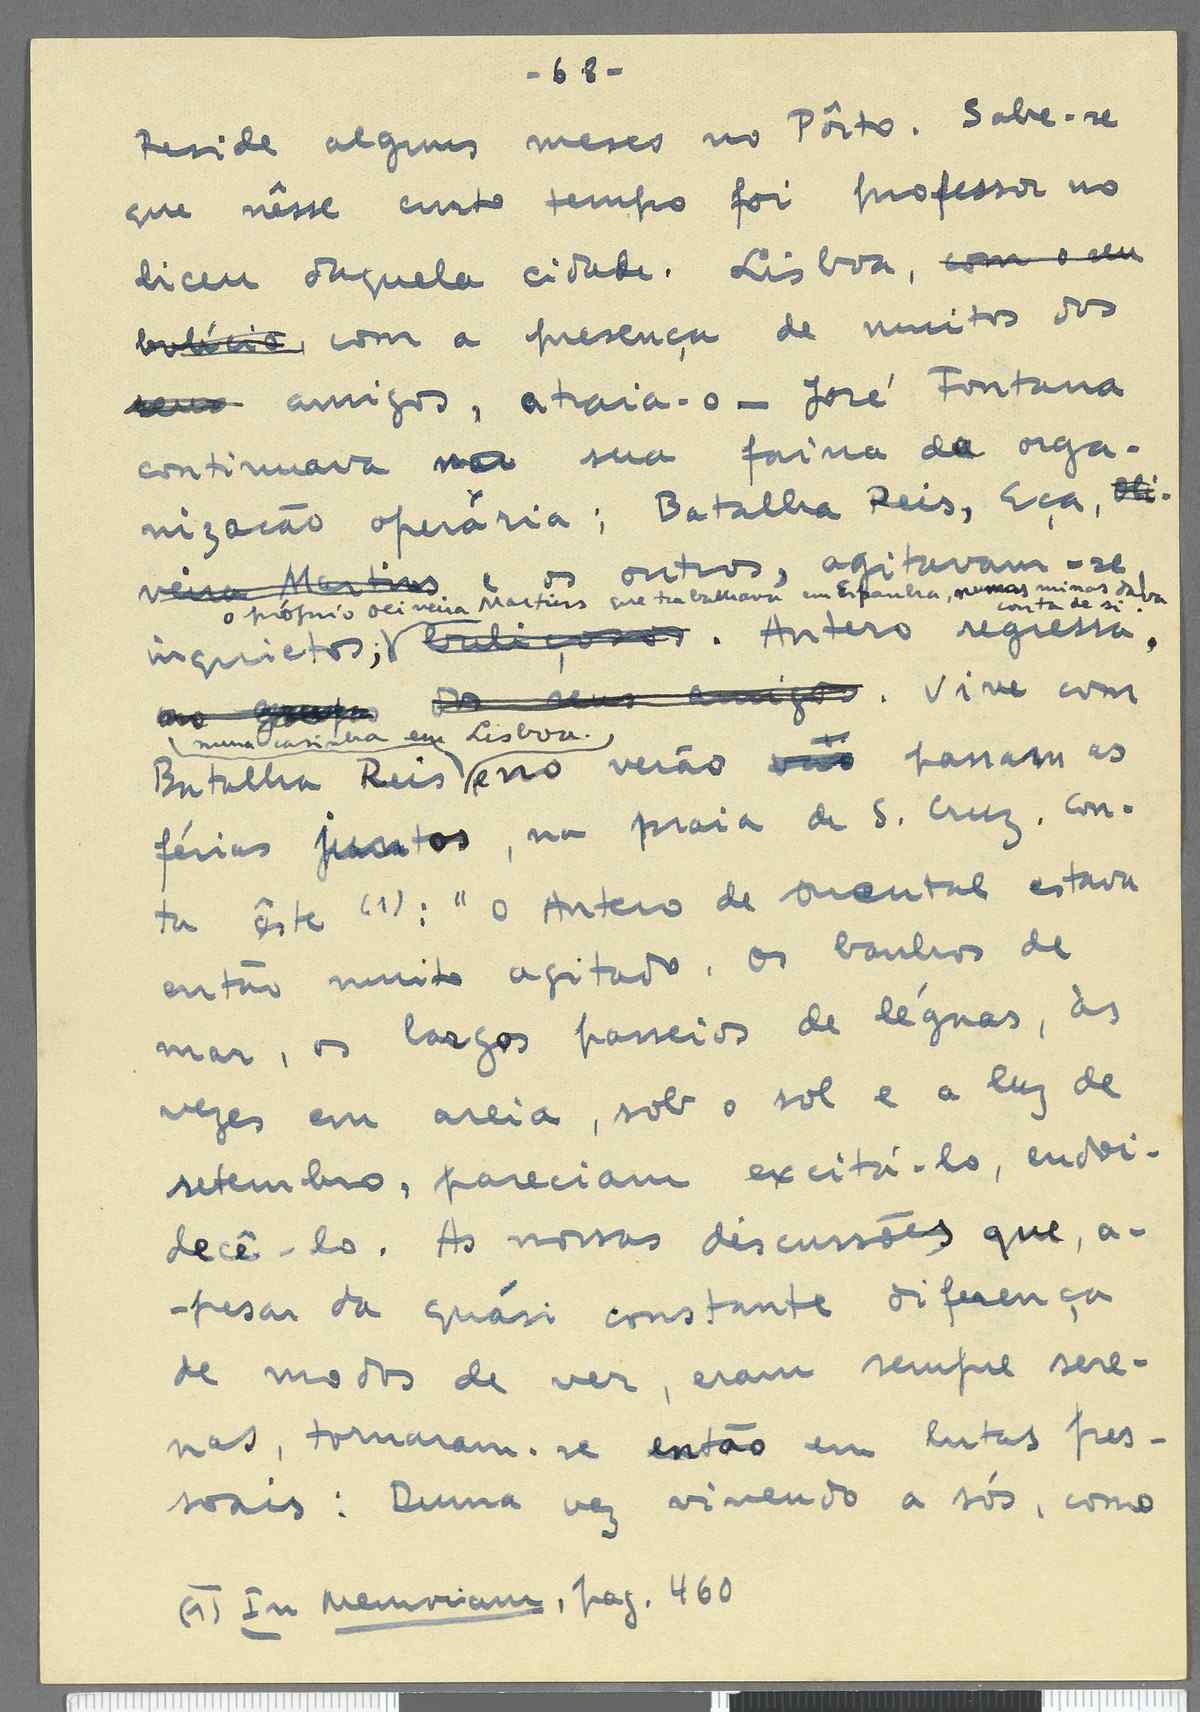 -68-
Reside alguns meses no Pôrto. Sabe-se
que nêsse curto tempo foi professor no
liceu daquela cidade. Lisboa, com o seu
bulício, com a presença de muitos dos
seus amigos, atraia-o — José Fontana
continuava na sua faina da orga-
nização operária; Batalha Reis, Eça, Oli-
veira Martins e os outros, agitavam-se,
o próprio Oliveira Martins que trabalhava em Espanha, numas minas dava
conta de si.
inquietos; buliçosos. Antero regressa,
ao grupo os seus amigos. Vive com
numa casinha em Lisboa.
Batalha Reis e no verão vão passam as
férias juntos, na praia de S. Cruz. Con-
ta êste (1): "O Antero de Quental estava
então muito agitado. Os banhos de
mar, os largos passeios de léguas, às
vezes em areia, sob o sol e a luz de
setembro, pareciam excitá-lo, endoi-
decê-lo. As nossas discussões que, a-
-pesar da quási constante diferença
de modos de ver, eram sempre sere-
nas, tornaram-se então em lutas pes-
soais: Duma vez vivendo a sós, como
(1) In Memoriam, pag. 460